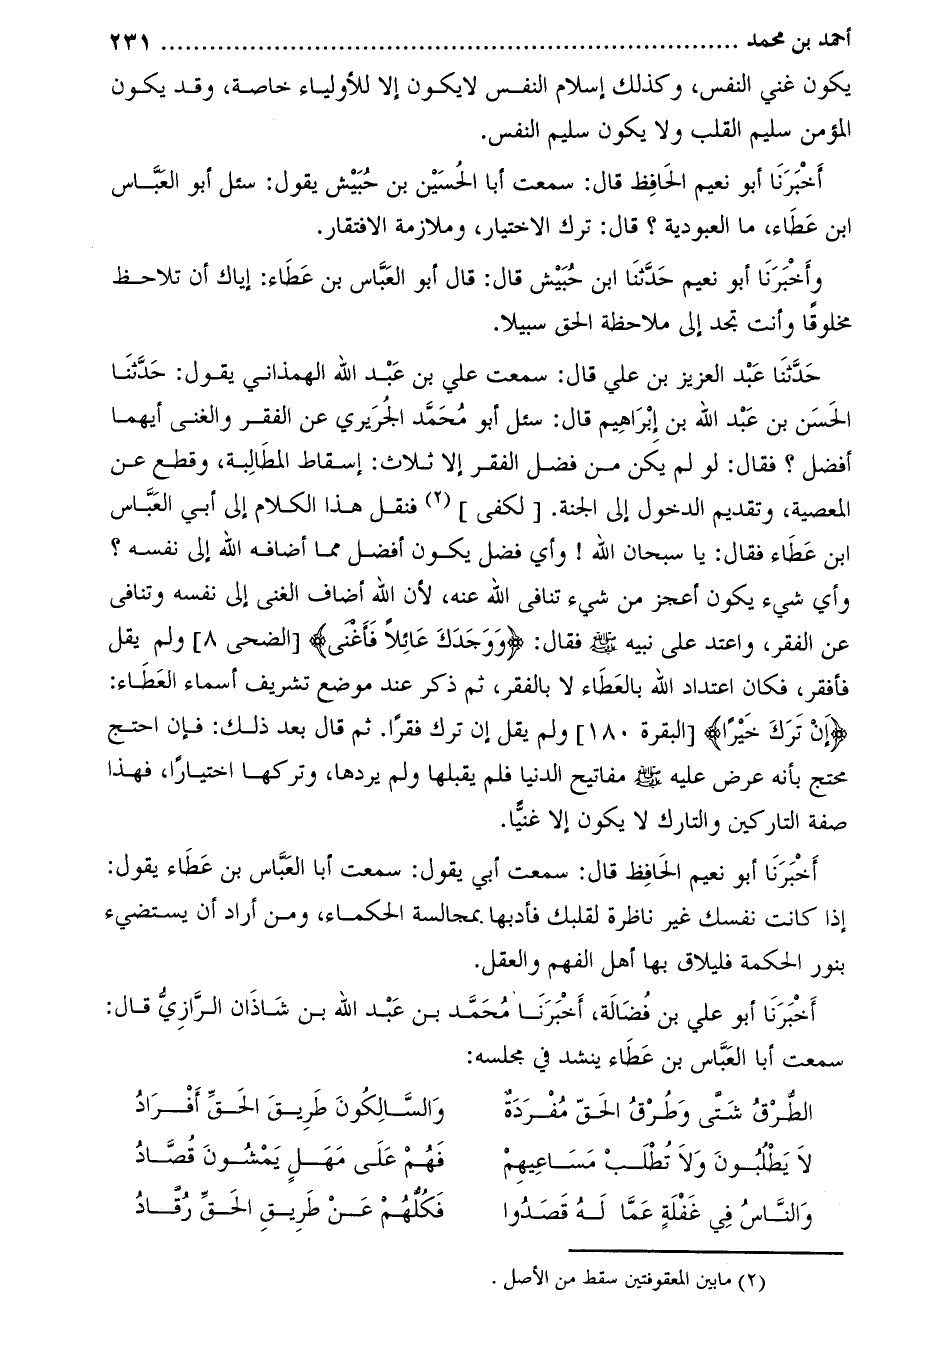 أحمد بن محمد ........................................................................ ٢٣١
يكون غني النفس، وكذلك إسلام النفس لايكون إلا للأولياء خاصة، وقد يكون
المؤمن سليم القلب ولا يكون سليم النفس.
أَخْبَرَنَا أبو نعيم الحَافِظ قال: سمعت أبا الحُسَيْن بن حُبَيْش يقول: سئل أبو العَبَّاس
ابن عَطَاء، ما العبودية ؟ قال: ترك الاختيار، وملازمة الافتقار.
وأَخْبَرَنَا أبو نعيم حَدَّثنَا ابن حُبَيْش قال: قال أبو العَبَّاس بن عَطَاء: إياك أن تلاحظ
مخلوقًا وأنت تجد إلى ملاحظة الحق سبيلا.
حَدَّثنَا عَبْد العزيز بن علي قال: سمعت علي بن عَبْد الله الهمذاني يقول: حَدَّثنَا
الحَسَن بن عَبْد الله بن إِبْرَاهِيم قال: سئل أبو مُحَمَّد الجُرَيري عن الفقر والغنى أيهما
أفضل ؟ فقال: لو لم يكن من فضل الفقر إلا ثلاث: إسقاط المطَالِبة، وقطع عن
المعصية، وتقديم الدخول إلى الجنة. [ لكفى ] (٢) فنقل هذا الكلام إلى أبي العَبَّاس
ابن عَطَاء فقال: يا سبحان الله ! وأي فضل يكون أفضل مما أضافه الله إلى نفسه ؟
وأي شيء يكون أعجز من شيء تنافى الله عنه، لأن الله أضاف الغنى إلى نفسه وتنافى
عن الفقر، واعتد على نبيه ﷺ فقال: ﴿وَوَجَدَكَ عَائِلاً فَأَغْنَى﴾ [الضحى ٨] ولم يقل
فأفقر، فكان اعتداد الله بالعَطَاء لا بالفقر، ثم ذكر عند موضع تشريف أسماء العَطَاء:
﴿إِنْ تَرَكَ خَيْرًا﴾ [البقرة ١٨٠] ولم يقل إن ترك فقرًا. ثم قال بعد ذلك: فإن احتج
محتج بأنه عرض عليه ﷺ مفاتيح الدنيا فلم يقبلها ولم يردها، وتركها اختيارًا، فهذا
صفة التاركين والتارك لا يكون إلا غنيًّا.
أَخْبَرَنَا أبو نعيم الحَافِظ قال: سمعت أبي يقول: سمعت أبا العَبَّاس بن عَطَاء يقول:
إذا كانت نفسك غير ناظرة لقلبك فأدبها بمجالسة الحكماء، ومن أراد أن يستضيء
بنور الحكمة فليلاق بها أهل الفهم والعقل.
أَخْبَرَنَا أبو علي بن فُضَالَة، أَخْبَرَنَا مُحَمَّد بن عَبْد الله بن شَاذَان الرَّازِيُّ قال:
سمعت أبا العَبَّاس بن عَطَاء ينشد في مجلسه:
الطُّرْقُ شَتَّى وَطُرْقُ الحَقّ مُفْرَدَةٌ    وَالسَّالِكُونَ طَرِيقَ الحَقِّ أَفْرَادُ
لاَ يَطْلُبُونَ وَلاَ تُطْلَبْ مَسَاعِيهِمْ    فَهُمْ عَلَى مَهَلٍ يَمْشُونَ قُصَّادُ
وَالنَّاسُ فِي غَفْلَةٍ عَمَّا لَهُ قَصَدُوا    فَكُلُّهُمْ عَنْ طَرِيقِ الحَقِّ رُقَّادُ
(٢) مابين المعقوفتين سقط من الأصل .